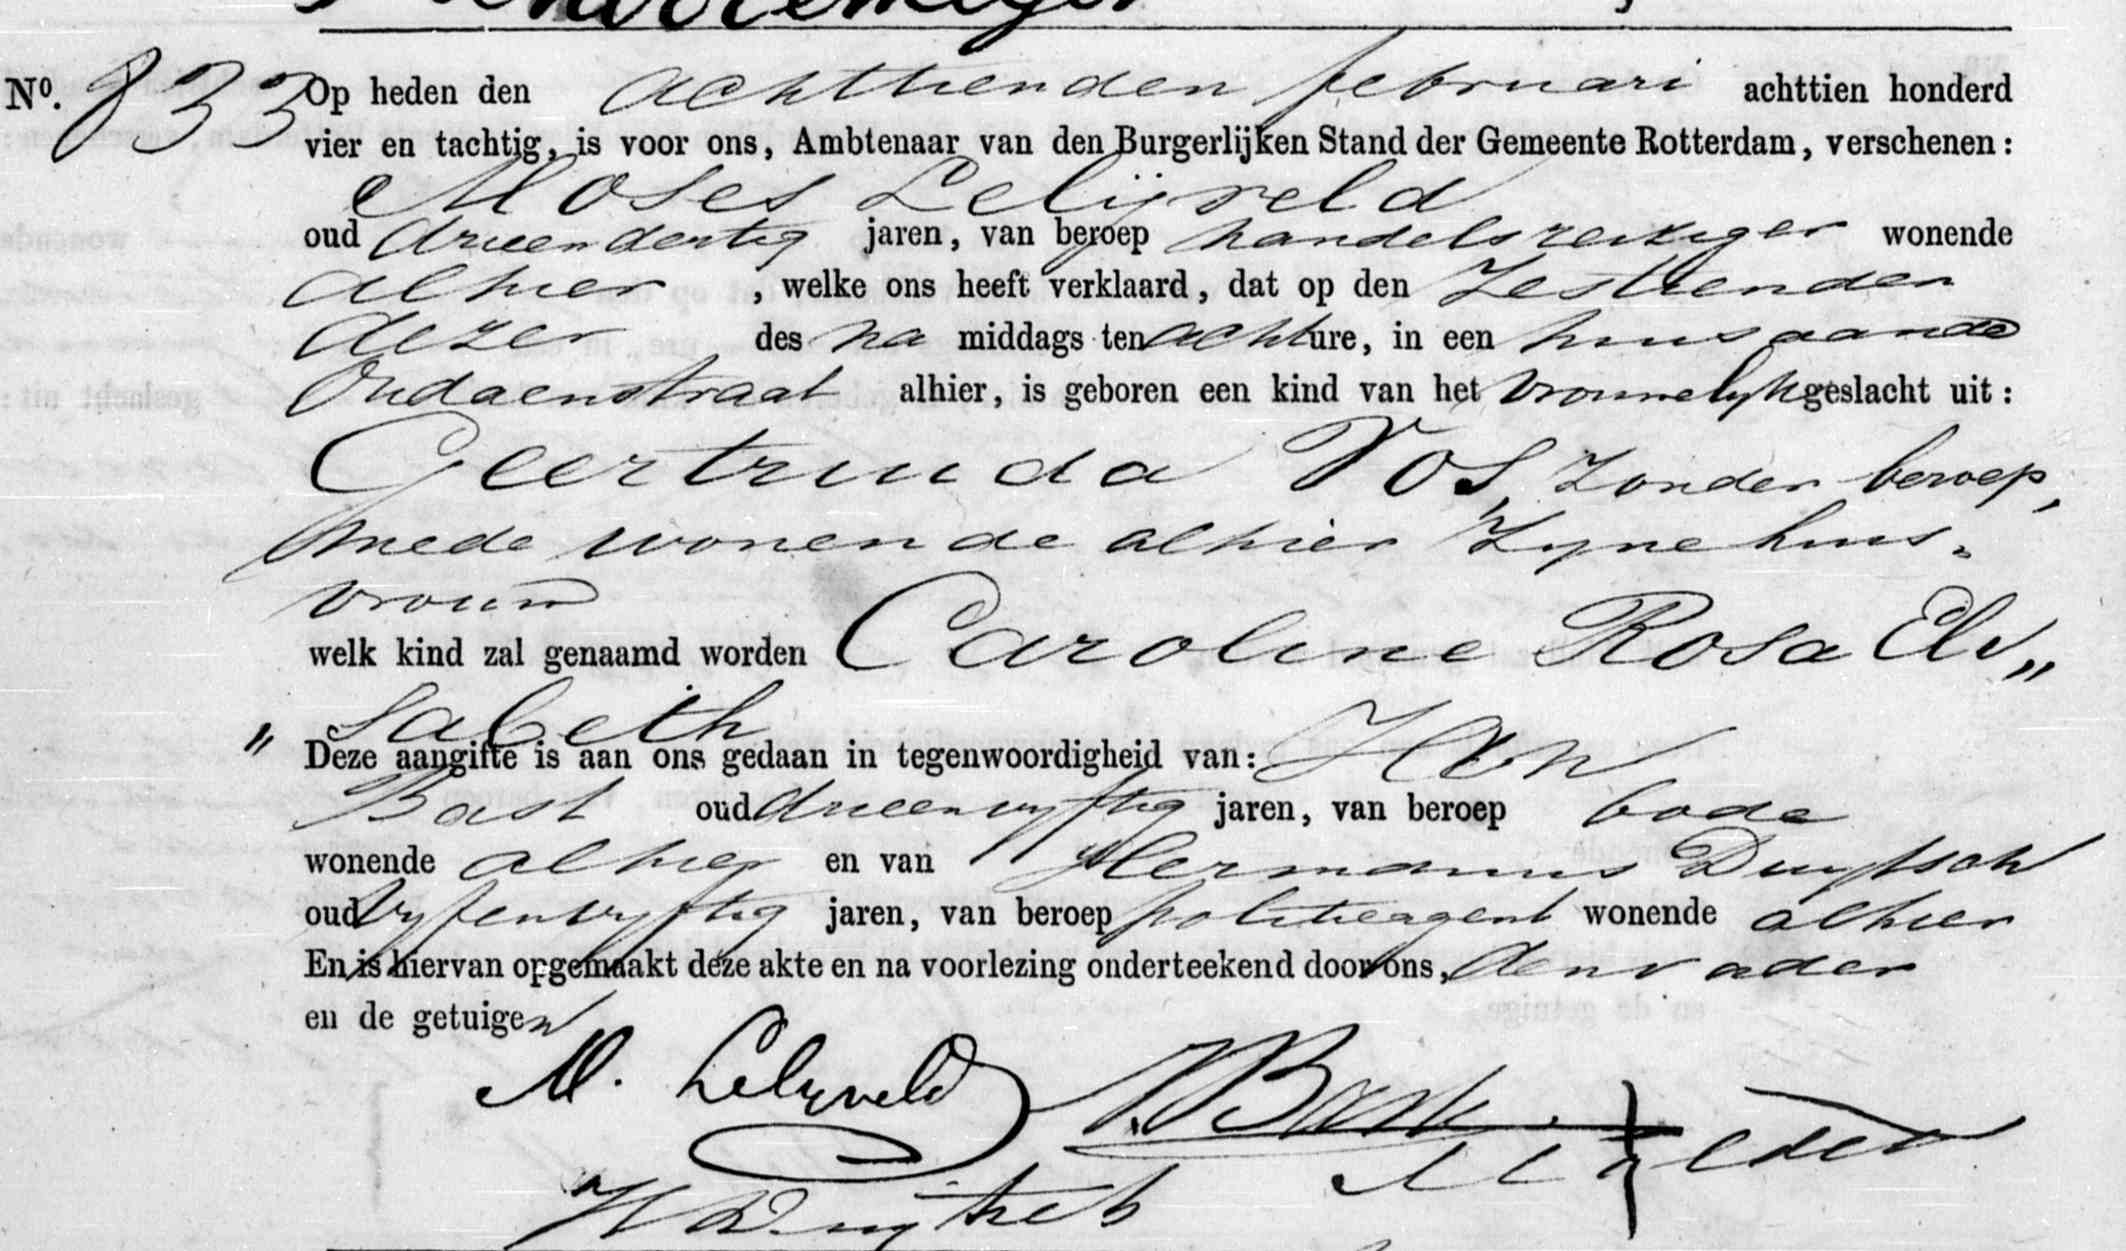 No. 833 Op heden den achttienden februari achttien honderd
vier en tachtig, is voor ons, Ambtenaar van den Burgerlijken Stand der Gemeente Rotterdam, verschenen:
Moses Lelijveld
oud drieendertig jaren, van beroep handelsreiziger wonende
alhier, welke ons heeft verklaard, dat op den zestienden
dezer des na middags ten acht ure, in een huis aan de
Oudaenstraat alhier, is geboren een kind van het vrouwelyk geslacht uit:
Geertruida Vos, zonder beroep,
mede wonende alhier zyne huis-
vrouw
welk kind zal genaamd worden Caroline Rosa Eli„
„sabeth
Deze aangifte is aan ons gedaan in tegenwoordigheid van: Jan
Bast oud drieenvyftig jaren, van beroep bode
wonende alhier en van Hermanus Duytsch
oud vyfenvyftig jaren, van beroep politieagent wonende alhier
En is hiervan opgemaakt deze akte en na voorlezing onderteekend door ons, den vader
en de getuigen
M. Lelyveld J. Bast
H Duijtsch